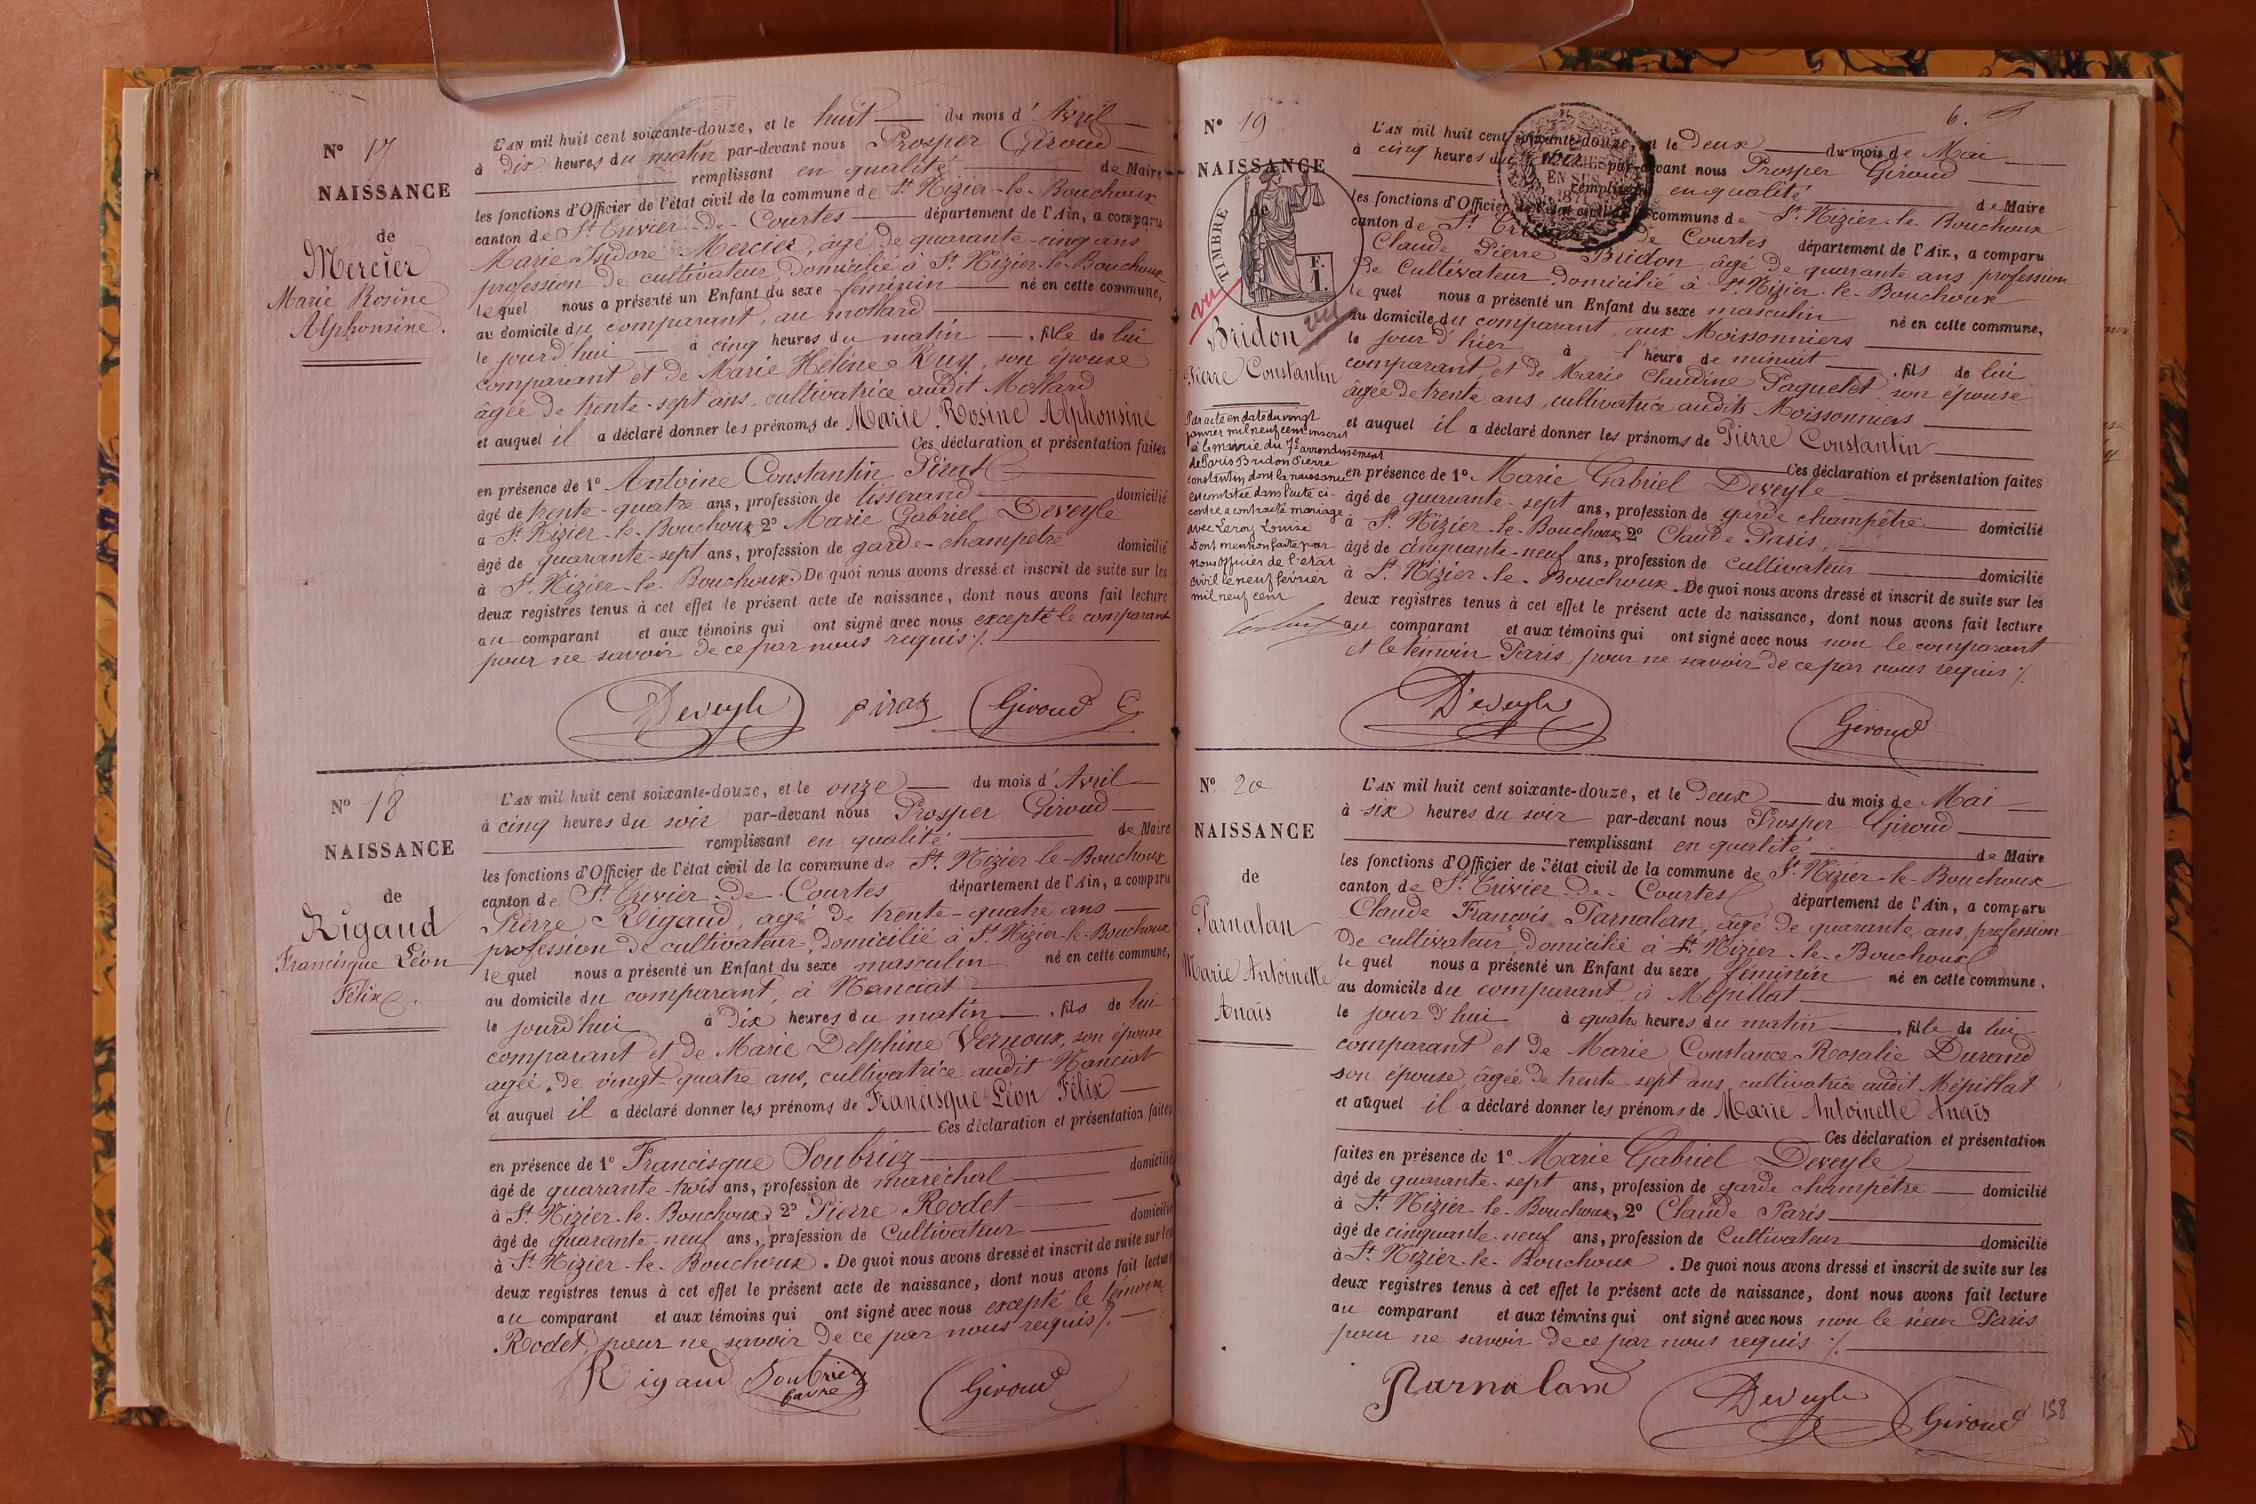 N° 17
NAISSANCE
de
Mercier
Marie Rosine
Alphonsine.
L'AN mil huit cent soixante-douze, et le huit du mois d'Avril
à dix heures du matin par-devant nous Prosper Giroud
remplissant en qualité de Maire
les fonctions d'Officier de l'état civil de la commune de St Nizier-le-Bouchoux
canton de St Trivier-de-Courtes département de l'Ain, a comparu
Marie Isidore Mercier, âgé de quarante-cinq ans
profession de cultivateur, domicilié à St Nizier-le-Bouchoux
lequel nous a présenté un Enfant du sexe féminin né en cette commune,
au domicile du comparant, au mottard
le jourd'hui à cinq heures du matin, fille de lui
comparant et de Marie Hélène Ruy, son épouse
âgée de trente-sept ans, cultivatrice audit Mottard
et auquel il a déclaré donner les prénoms de Marie Rosine Alphonsine
Ces déclaration et présentation faites
en présence de 1° Antoine Constantin Pirat
âgé de trente-quatre ans, profession de tisserand domicilié
à St Nizier-le-Bouchoux 2° Marie Gabriel Deveyle
âgé de quarante-sept ans, profession de garde-champêtre domicilié
à St Nizier-le-Bouchoux. De quoi nous avons dressé et inscrit de suite sur les
deux registres tenus à cet effet le présent acte de naissance, dont nous avons fait lecture
au comparant et aux témoins qui ont signé avec nous excepté le comparant
pour ne savoir de ce par nous requis ./.
Deveyle Pirat Giroud
N° 18
NAISSANCE
de
Rigaud
Francisque Léon
Félix.
L'AN mil huit cent soixante-douze, et le onze du mois d'Avril
à cinq heures du soir par-devant nous Prosper Giroud
remplissant en qualité de Maire
les fonctions d'Officier de l'état civil de la commune de St Nizier-le-Bouchoux
canton de St Trivier-de-Courtes département de l'Ain, a comparu
Pierre Rigaud, agé de trente-quatre ans
profession de cultivateur, domicilié à St Nizier-le-Bouchoux
lequel nous a présenté un Enfant du sexe masculin né en cette commune,
au domicile du comparant, à Nanciat
le jourd'hui à dix heures du matin, fils de lui
comparant et de Marie Delphine Vernoux, son épouse
agée de vingt-quatre ans, cultivatrice audit Nanciat
et auquel il a déclaré donner les prénoms de Francisque Léon Félix
Ces déclaration et présentation faites
en présence de 1° Francisque Soubriez
âgé de quarante-trois ans, profession de maréchal domicilié
à St Nizier-le-Bouchoux, 2° Pierre Rodet
âgé de quarante-neuf ans, profession de Cultivateur domicilié
à St Nizier-le-Bouchoux. De quoi nous avons dressé et inscrit de suite sur les
deux registres tenus à cet effet le présent acte de naissance, dont nous avons fait lecture
au comparant et aux témoins qui ont signé avec nous excepté le témoin
Rodet, pour ne savoir de ce par nous requis ./.
Rigaud Soubriez Giroud
6.
N° 19
NAISSANCE
de
TIMBRE
F.
1.
vu
vu
Bridon
Pierre Constantin
Par acte en date du vingt
janvier mil neuf cent inscrit
à la mairie du 7e arrondissement
de Paris Bridon Pierre
constantin dont la naissance
est constatée dans l'acte ci-
contre a contracté mariage
avec Leroy Louise
Dont mention faite par
nous officier de l'état
civil le neuf février
mil neuf cent
L'AN mil huit cent soixante-douze, et le Deux du mois de Mai
à cinq heures du soir par-devant nous Prosper Giroud
remplissant en qualité de Maire
les fonctions d'Officier de l'état civil de la commune de St Nizier-le-Bouchoux
canton de St Trivier de Courtes département de l'Ain, a comparu
Claude Pierre Bridon âgé de quarante ans profession
de Cultivateur domicilié à St Nizier-le-Bouchoux
lequel nous a présenté un Enfant du sexe masculin né en cette commune,
au domicile du comparant, aux Moissonniers
le jour d'hier à l'heure de minuit, fils de lui
comparant et de Marie Claudine Paquelet son épouse
âgée de trente ans, cultivatrice audits Moissonniers
et auquel il a déclaré donner les prénoms de Pierre Constantin
Ces déclaration et présentation faites
en présence de 1° Marie Gabriel Deveyle
âgé de quarante-sept ans, profession de garde champêtre domicilié
à St Nizier-le-Bouchoux, 2° Claude Paris,
âgé de cinquante-neuf ans, profession de cultivateur domicilié
à St Nizier-le-Bouchoux. De quoi nous avons dressé et inscrit de suite sur les
deux registres tenus à cet effet le présent acte de naissance, dont nous avons fait lecture
au comparant et aux témoins qui ont signé avec nous non le comparant
et le témoin Paris, pour ne savoir de ce par nous requis ./.
Deveyle Giroud
N° 20
NAISSANCE
de
Parnalan
Marie Antoinette
Anaïs
L'AN mil huit cent soixante-douze, et le Deux du mois de Mai
à six heures du soir par-devant nous Prosper Giroud
remplissant en qualité de Maire
les fonctions d'Officier de l'état civil de la commune de St Nizier-le-Bouchoux
canton de St Trivier-de-Courtes département de l'Ain, a comparu
Claude François Parnalan, âgé de quarante ans, profession
de cultivateur domicilié à St Nizier-le-Bouchoux
lequel nous a présenté un Enfant du sexe féminin né en cette commune,
au domicile du comparant à Mépillat
le jour d'hui à quatre heures du matin, fille de lui
comparant et de Marie Constance Rosalie Durand
son épouse, âgée de trente sept ans, cultivatrice audit Mépillat
et auquel il a déclaré donner les prénoms de Marie Antoinette Anaïs
Ces déclaration et présentation
faites en présence de 1° Marie Gabriel Deveyle
âgé de quarante-sept ans, profession de garde champêtre domicilié
à St Nizier-le-Bouchoux, 2° Claude Paris
âgé de cinquante-neuf ans, profession de Cultivateur domicilié
à St Nizier-le-Bouchoux. De quoi nous avons dressé et inscrit de suite sur les
deux registres tenus à cet effet le présent acte de naissance, dont nous avons fait lecture
au comparant et aux témoins qui ont signé avec nous non le sieur Paris
pour ne savoir de ce par nous requis ./.
Parnalan Deveyle Giroud
158